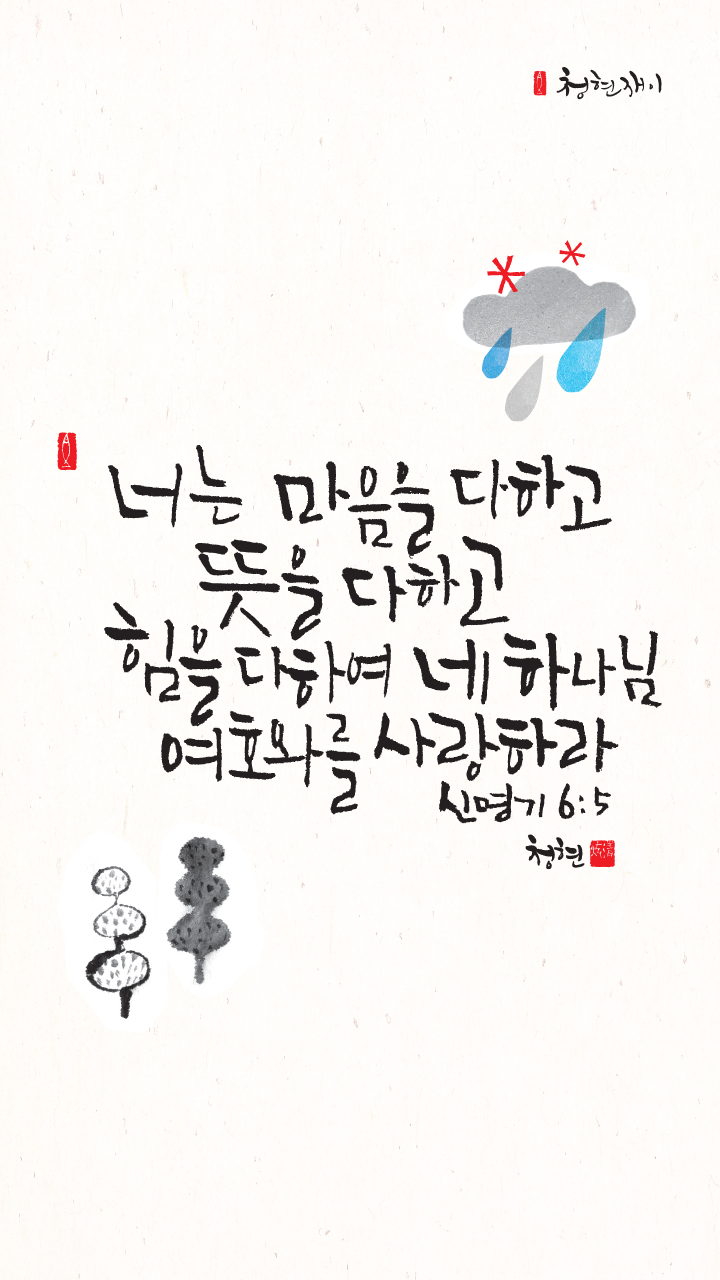 청현재이
너는 마음을 다하고
뜻을 다하고
힘을 다하여 네 하나님
여호와를 사랑하라
신명기 6:5
청현